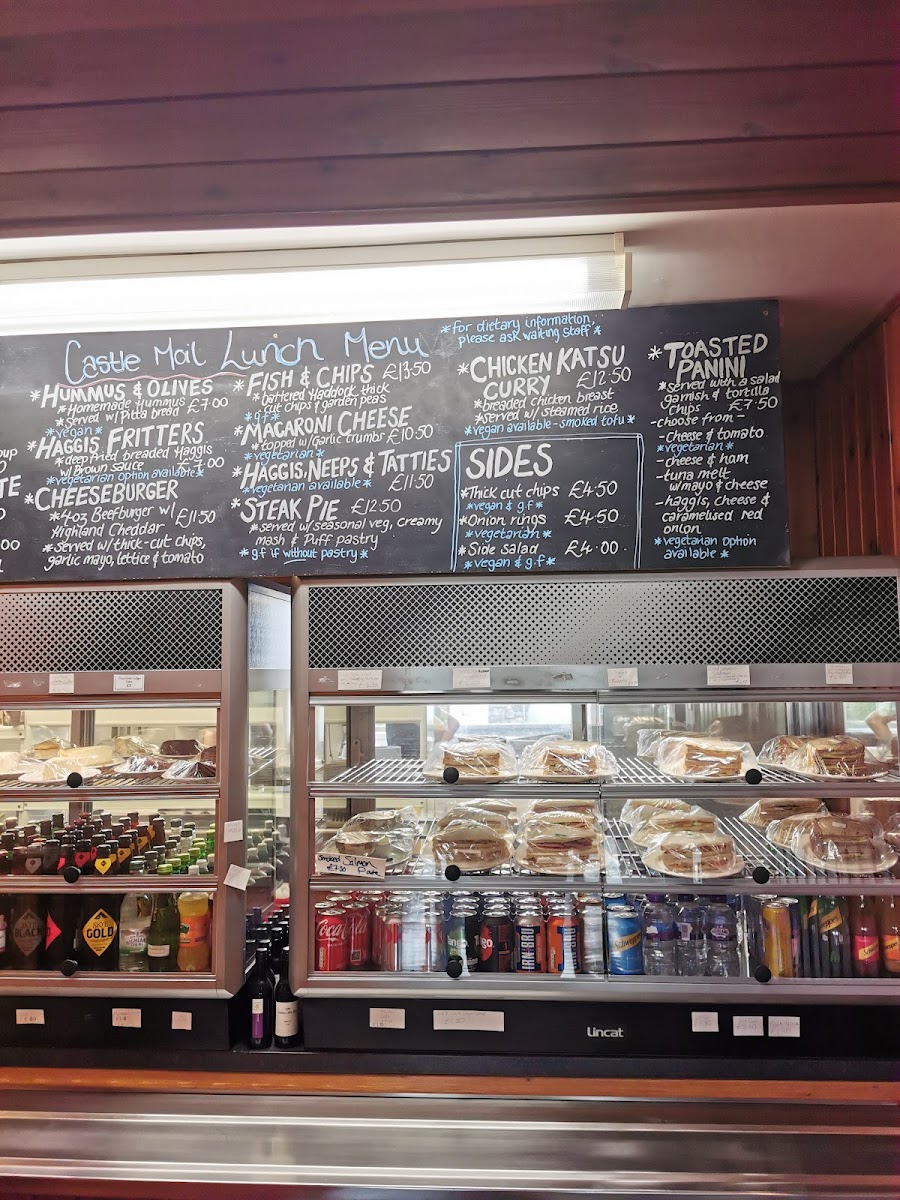 Castle Mail Lunch Menu
*for dietary information,
please ask waiting staff*
oup
TE
00
*HUMMUS & OLIVES
*Homemade Hummus £7.00
*served w/ Pitta bread
*vegan*
*HAGGIS FRITTERS
*deep fried breaded Haggis
w/ Brown sauce £7.00
*vegetarian option available*
*CHEESEBURGER
*4oz Beefburger w/ £11.50
Highland Cheddar
*served w/ thick-cut chips,
garlic mayo, lettice & tomato
*FISH & CHIPS £13.50
*battered Haddock, thick
cut chips & garden peas
*g.f*
*MACARONI CHEESE
*topped w/ Garlic crumbs £10.50
*vegetarian*
*HAGGIS, NEEPS & TATTIES
*vegetarian available* £11.50
*STEAK PIE £12.50
*served w/ seasonal veg, creamy
mash & Puff pastry
*gf if without pastry*
*CHICKEN KATSU
CURRY £12.50
*breaded chicken breast
*served w/ steamed rice
*vegan available - smoked tofu*
SIDES
*Thick cut chips £4.50
*vegan & g.f*
*Onion rings £4.50
*vegetarian*
*Side salad £4.00.
*vegan & g.f*
*TOASTED
PANINI
*served with a salad
garnish & tortilla
chips £7.50
-choose from-
-cheese & tomato
*vegetarian*
-cheese & ham
-tuna melt
w/mayo & cheese
-haggis, cheese &
caramelised red
onion
*vegetarian option
available*
Smoked Salmon
£7.50 Pate
BLACK
GOLD
Coca-Cola
IRN-BRU
Schweppes
Lincat